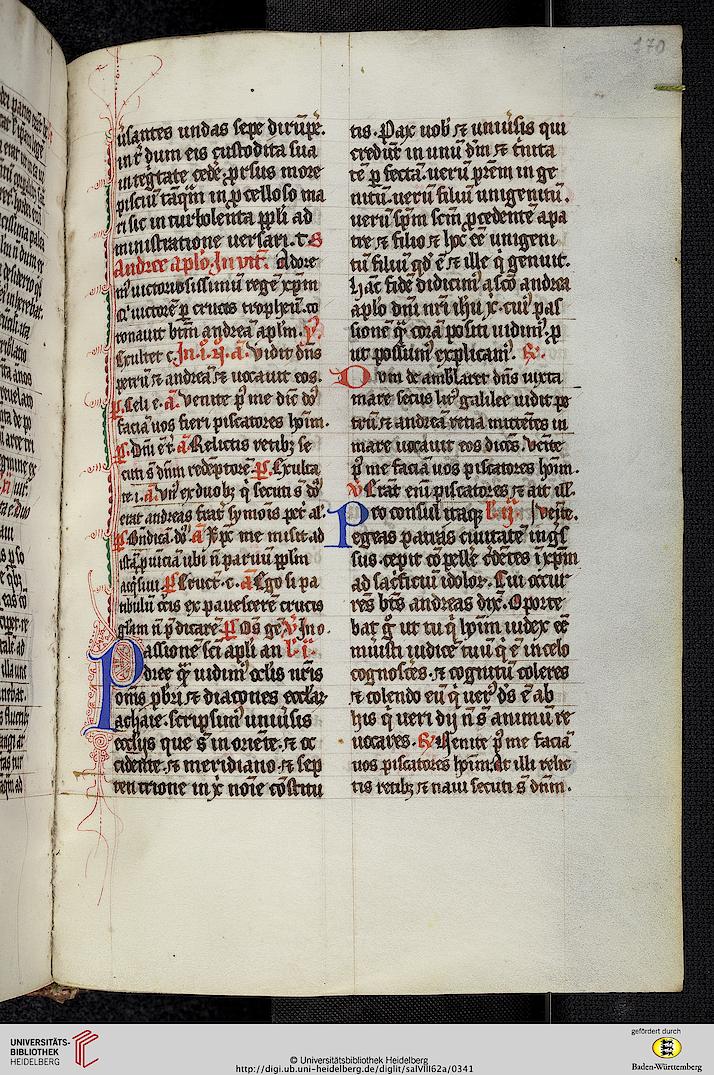 170
usantes undas sepe dirūpe.
int̄ dum eis custodita sua
integtate cedē. ꝓrsus more
pisciū tāqm̄ in ꝓcelloso ma
ri sic in turbolenta ppli ad
ministratione uersari. t. S
Andree aplo. Invit̄. Adore
mꝰ uictoriosissimū regē xpm̄
Qͥ uictorē ꝑ crucis tropheū. co
ronauit btm̄ andreā aplm. ymꝰ
Exultet c. In .i. n̄. a. Vidit dn̄s
petrū ⁊ andreā ⁊ uocauit eos.
ps. Celi e. a. Venite pꝰ me dic̄ dn̄s
faciā uos fieri piscatores hoīm.
ps. Dn̄i ē t̄. a. Relictis retibꝫ se
cuti s̄ dūm redēptorē. ps. Exulta
te i. a. Vnꝰ ex duobꝫ qͥ secuti s̄ dn̄m
erat andreas frat̄ symois pet̄ al.
ps. Bndicā dō. a. Xpc me misit ad
istā ꝓuīciā ubi n̄ paruū pplm
aqͥsiui. ps. Eruct̄. c. a. Ego si pa
tibulū crucis expauescerē crucis
glam n̄ p̄dicarē. ps. Om̄s gē. V. In o.
Passionē sci apli an l. i.
dree qͣ uidimꝰ oclis nr̄is
om̄s pbr̄i ⁊ diacones ecclar̄
achaie. scripsimꝰ uniuˢsis
eccliis que s̄ in oriēte. ⁊ oc
cidente. ⁊ meridiano. ⁊ sep
tentrione in xͥ noīe cōstitu
tis. Pax uobꝫ ⁊ uniuˢsis qui
credūt in unū dm̄ ⁊ t̄nita
te ꝑfectā. ueru prēm in ge
nitū. ueru filiū unigenitū.
ueru spm̄ scm̄ ꝓcedente a pa
tre ⁊ filio ⁊ hoc eē unigeni
tū filiū qd̄ ē ⁊ ille qͥ genuit.
Hāc fidē didicimꝰ a sc̄o andrea
aplo dn̄i nr̄i ihu xͥ. cuiꝰ pas
sionē qͣ corā positi uidimꝰ. ꝓ
ut possumꝰ explicamꝰ. R.
Dvm deamblaret dn̄s iuxta
mare secus litꝰ galilee uidit pe
trū ⁊ andreā retia mittētes in
mare uocauit eos dicēs. Veīte
pꝰ me faciā uos piscatores hoīm.
V. Erāt enī piscatores ⁊ ait ill.
Proconsul itaqꝫ l. ij. Veīte.
egeas patras ciuitatē ingͤs
sus. cepit cōpelle credētes ī xpm̄
ad sacficiū idolor̄. Cui occur
rēs bt̄s andreas dix̄. Oporte
bat g̊ ut tu qͥ hoīm iudex eē
miusti iudicē tuū qͥ ē in celo
cognosceˢs. ⁊ cognitū coleres
⁊ colendo eū qͥ uerꝰ ds̄ ē ab
his qͥ ueri dii n̄ s̄ animū re
uocares. R. Venite pꝰ me faciā
uos piscatores hoīm. At illi relic
tis retibꝫ ⁊ naui secuti s̄ dn̄m.
UNIVERSITÄTS-
BIBLIOTHEK
HEIDELBERG
© Universitätsbibliothek Heidelberg
http://digi.ub.uni-heidelberg.de/diglit/salVIII62a/0341
gefördert durch
Baden-Württemberg